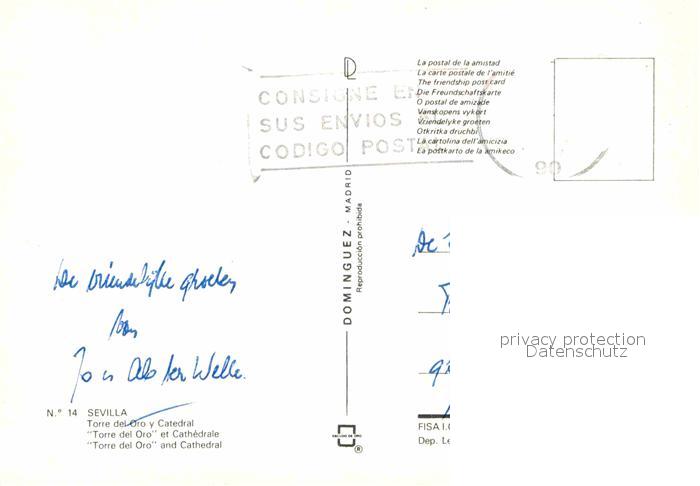 La postal de la amistad
La carte postale de l'amitié
The friendship post card
Die Freundschaftskarte
O postal de amizade
Vanskopens vykort
Vriendelyke groeten
Otkritka druchbi
La cartolina dell'amicizia
La postkarto de la amikeco
CONSIGNE EN
SUS ENVIOS
CODIGO POSTAL
90
DOMINGUEZ - MADRID
Reproducción prohibida
De vriendelijke groeten
van
Jo
De
privacy protection
Datenschutz
N.° 14 SEVILLA
Torre del Oro y Catedral
"Torre del Oro" et Cathédrale
"Torre del Oro" and Cathedral
FISA I.
Dep. Le
®